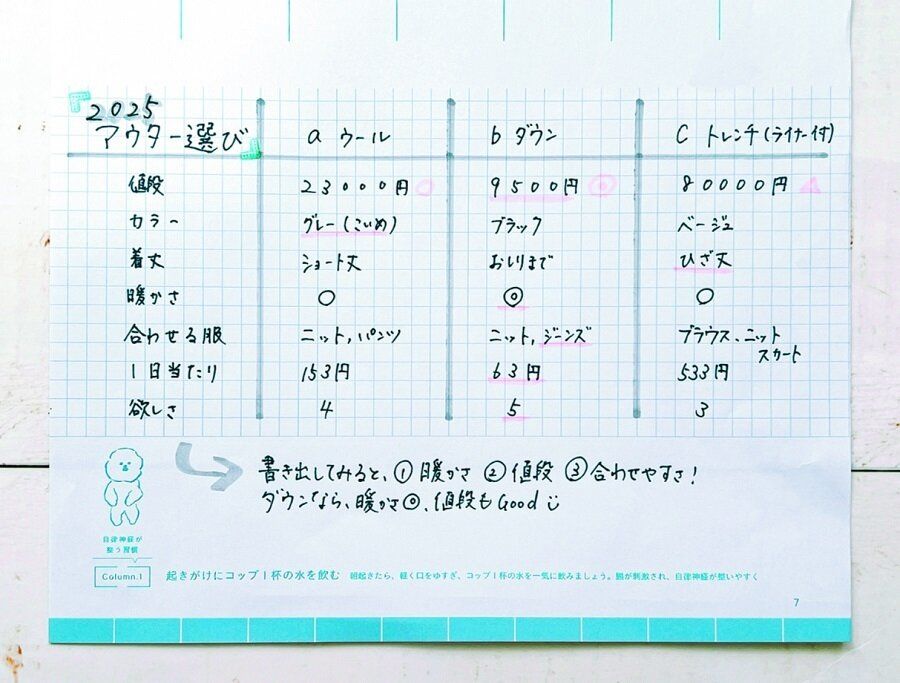 2025
アウター選び a ウール b ダウン C トレンチ(ライナー付)
値段 23000円 9500円 80000円
カラー グレー(こいめ) ブラック ベージュ
着丈 ショート丈 おしりまで ひざ丈
暖かさ ○ ◎ ○
合わせる服 ニット,パンツ ニット,ジーンズ ブラウス、ニット
スカート
1日当たり 153円 63円 533円
欲しさ 4 5 3
書き出してみると、①暖かさ ②値段 ③合わせやすさ!
ダウンなら、暖かさ◎、値段もGood
自律神経が
整う習慣
Column.1 起きがけにコップ1杯の水を飲む 朝起きたら、軽く口をゆすぎ、コップ1杯の水を一気に飲みましょう。腸が刺激され、自律神経が整いやすく
7